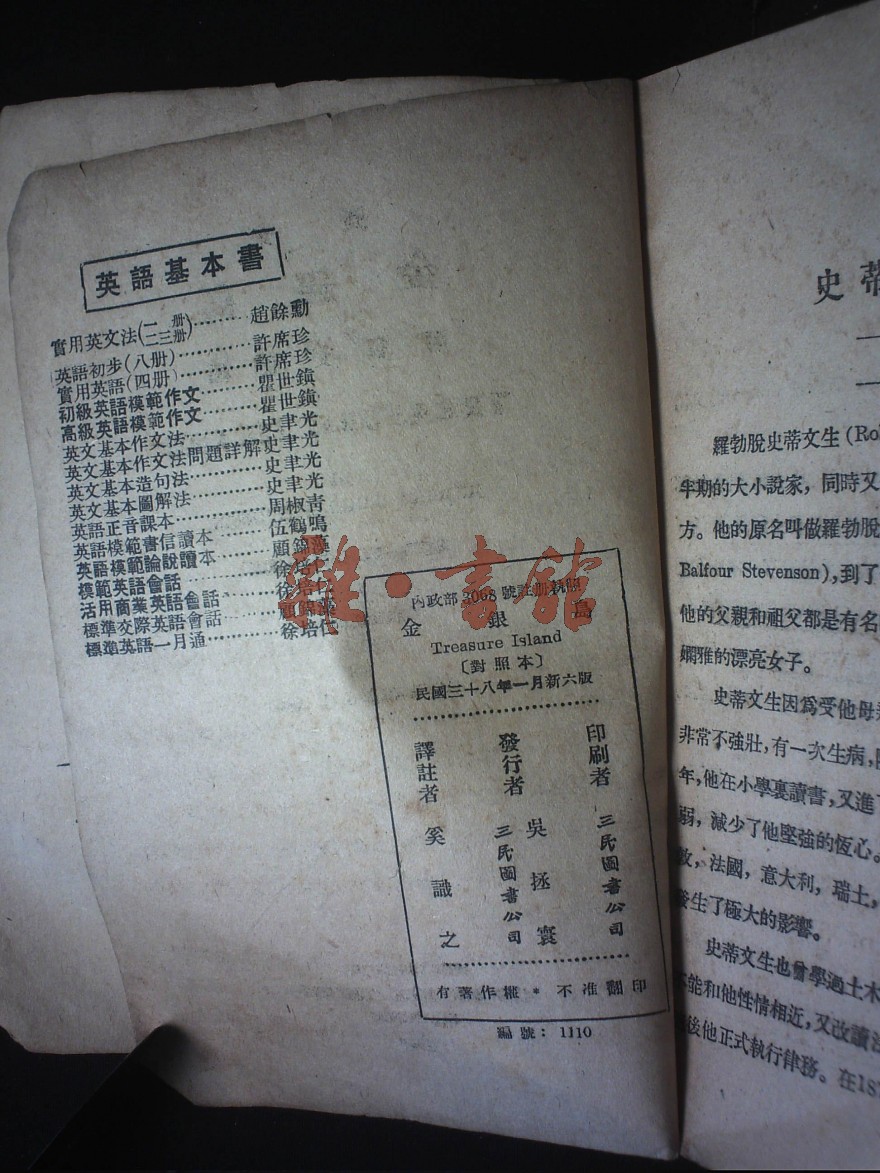 英語基本書
實用英文法(一二冊 二三冊)………趙餘勳
英語初步(八冊)…………許席珍
實用英語(四冊)…………許席珍
初級英語模範作文………瞿世鎮
高級英語模範作文………瞿世鎮
英文基本作文法…………史聿光
英文基本作文法問題詳解史聿光
英文基本造句法…………史聿光
英文基本圖解法…………史聿光
英語正音課本……………周椒青
英語模範書信讀本………伍鶴鳴
英語模範論說讀本………顧錦藻
模範英語會話……………徐培仁
活用商業英語會話………徐培仁
標準交際英語會話………顧錦藻
標準英語一月通…………徐培仁
雜·書館
內政部 3068 號註冊執照
金銀島
Treasure Island
〔對照本〕
民國三十八年一月新六版
譯註者 奚識之
發行者 吳拯寰 三民圖書公司
印刷者 三民圖書公司
有著作權 * 不准翻印
編號：1110
史蒂
羅勃脫史蒂文生(Ro
半期的大小說家，同時又
方。他的原名叫做羅勃脫
Balfour Stevenson),到了
他的父親和祖父都是有名
嫻雅的漂亮女子。
史蒂文生因爲受他母
非常不強壯，有一次生病，
年，他在小學裏讀書，又進
弱，減少了他堅強的恆心。
敦，法國，意大利，瑞士，
發生了極大的影響。
史蒂文生也曾學過土木
不能和他性情相近，又改讀法
後他正式執行律務。在187